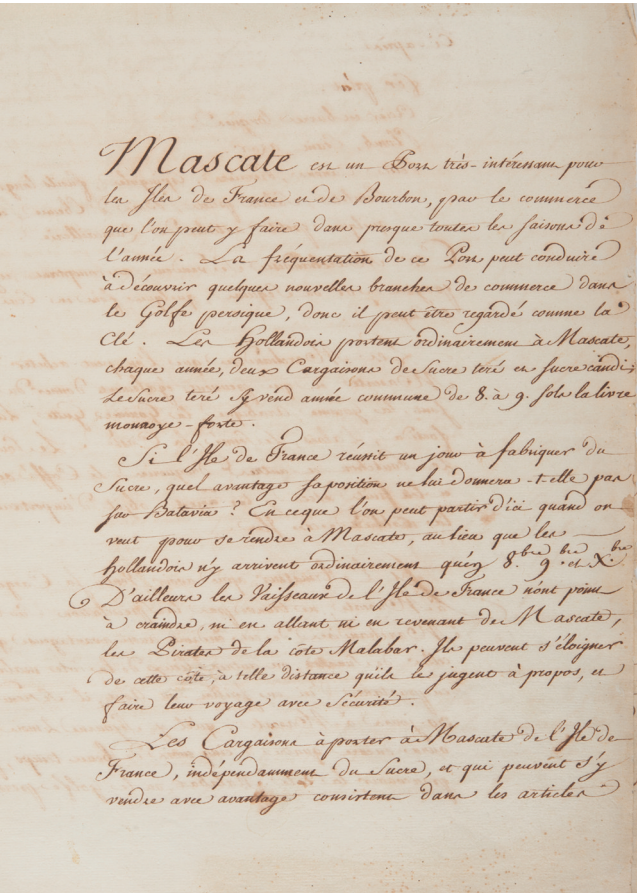 Mascate est un Port très-intéressant pour
les Isles de France et de Bourbon, par le commerce
que l'on peut y faire dans presque toutes les saisons de
l'année. La fréquentation de ce Port peut conduire
à découvrir quelques nouvelles branches de commerce dans
le Golfe persique, dont il peut être regardé comme la
Clé. Les Hollandois portent ordinairement à Mascate,
chaque année, deux Cargaisons de Sucre teré et sucre candi;
Le Sucre teré s'y vend année commune de 8. à 9. sols la livre
monnoye-forte.
Si l'Isle de France réunit un jour à fabriquer du
Sucre, quel avantage sa position ne lui donnera-t-elle pas
sur Batavia? En ce que l'on peut partir d'ici quand on
veut pour se rendre à Mascate, au lieu que les
Hollandois n'y arrivent ordinairement qu'en 8.bre 9.bre et X.bre
D'ailleurs les Vaisseaux de l'Isle de France n'ont point
à craindre, ni en allant ni en revenant de Mascate,
les Pirates de la côte Malabar. Ils peuvent s'éloigner
de cette côte, à telle distance qu'ils le jugent à propos, et
faire leur voyage avec Sécurité.
Les Cargaisons à porter à Mascate de l'Isle de
France, indépendamment du Sucre, et qui peuvent s'y
vendre avec avantage consistent dans les articles